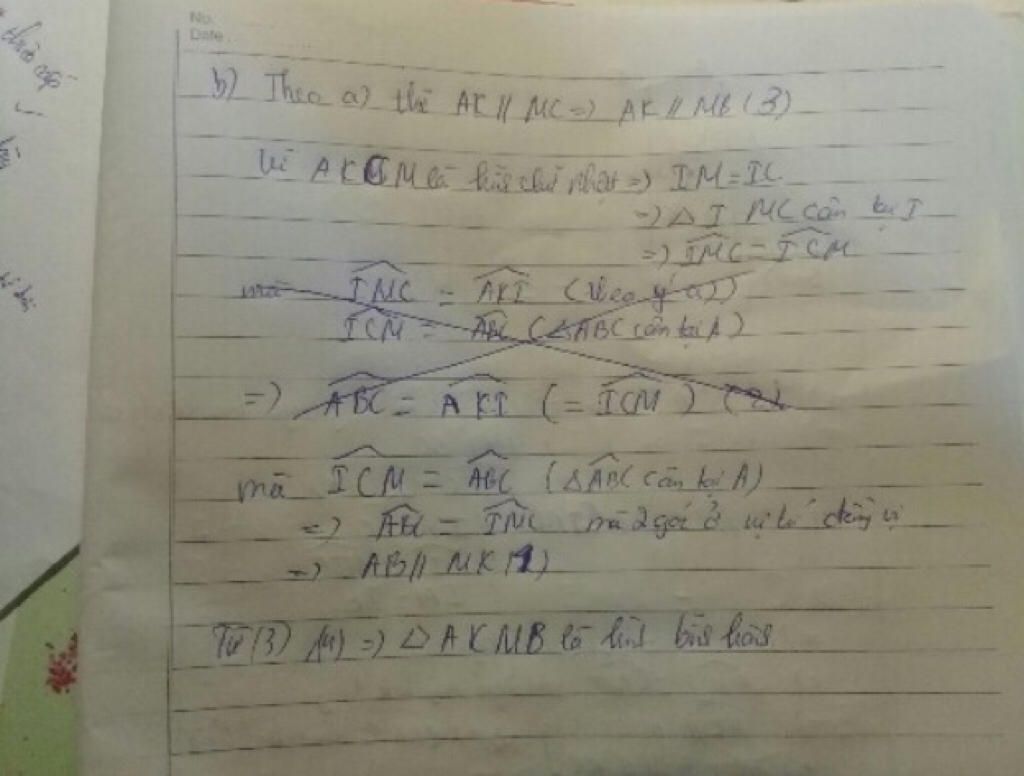 No.
Date
b) Theo a) thì AK // MC => AK // MB (3)
Vì AKCIM là hìn chữ nhật => IM = IC
=> △ I MC cân tại I
=> IMC = ICM
mà IMC = AKI (theo ý a))
ICM = ABC (△ABC cân tại A)
=> ABC = AKI (= ICM) (2)
mà ICM = ABC (△ABC cân tại A)
=> ABC = IMC mà 2 góc ở vị trí đồng vị
=> AB // MK
Từ (3) (4) => △ AKMB là hìn bìn hàn